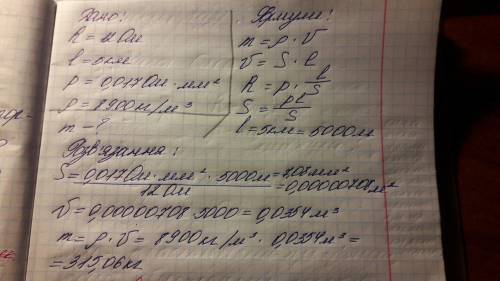 Дано:
R = 12 Ом
l = 5 км
ρ = 0,017 Ом · мм²
ρ = 8900 кг/м³
m - ?
Формули:
m = ρ · V
V = S · l
R = ρ · l/S
S = ρl/S
l = 5км = 5000м
Розв'язання:
S = 0,017 Ом · мм² · 5000м / 12 Ом = 7,08 мм² =
= 0,00000708 м²
V = 0,00000708 · 5000 = 0,0354 м³
m = ρ · V = 8900 кг/м³ · 0,0354 м³ =
= 315,06 кг